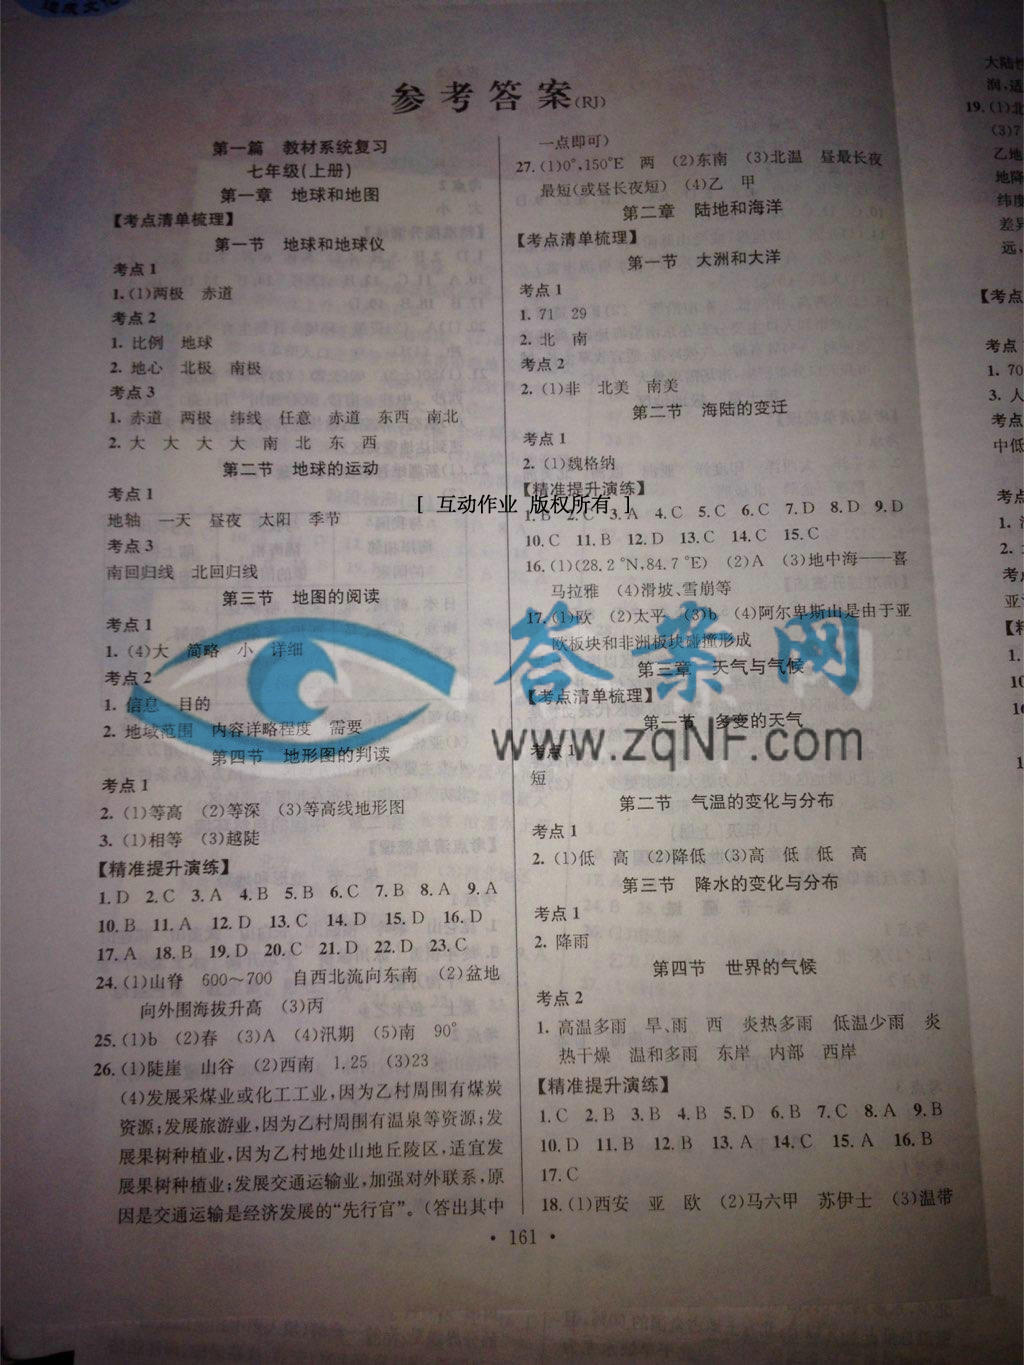 参考答案(RJ)
第一篇 教材系统复习
七年级(上册)
第一章 地球和地图
【考点清单梳理】
第一节 地球和地球仪
考点1
1.(1)两极 赤道
考点2
1. 比例 地球
2. 地心 北极 南极
考点3
1. 赤道 两极 纬线 任意 赤道 东西 南北
2. 大 大 大 大 南 北 东 西
第二节 地球的运动
考点1
地轴 一天 昼夜 太阳 季节
考点3
南回归线 北回归线
第三节 地图的阅读
考点1
1.(4)大 简略 小 详细
考点2
1. 信息 目的
2. 地域范围 内容详略程度 需要
第四节 地形图的判读
考点1
2.(1)等高 (2)等深 (3)等高线地形图
3.(1)相等 (3)越陡
【精准提升演练】
1. D 2. C 3. A 4. B 5. B 6. C 7. B 8. A 9. A
10. B 11. A 12. D 13. C 14. D 15. D 16. D
17. A 18. B 19. D 20. C 21. D 22. D 23. C
24.(1)山脊 600～700 自西北流向东南 (2)盆地
向外围海拔升高 (3)丙
25.(1)b (2)春 (3)A (4)汛期 (5)南 90°
26.(1)陡崖 山谷 (2)西南 1.25 (3)23
(4)发展采煤业或化工工业,因为乙村周围有煤炭
资源;发展旅游业,因为乙村周围有温泉等资源;发
展果树种植业,因为乙村地处山地丘陵区,适宜发
展果树种植业;发展交通运输业,加强对外联系,原
因是交通运输是经济发展的“先行官”。(答出其中
一点即可)
27.(1)0°,150°E 两 (2)东南 (3)北温 昼最长夜
最短(或昼长夜短) (4)乙 甲
第二章 陆地和海洋
【考点清单梳理】
第一节 大洲和大洋
考点1
1. 71 29
2. 北 南
考点2
2.(1)非 北美 南美
第二节 海陆的变迁
考点1
2.(1)魏格纳
【精准提升演练】
[ 互动作业 版权所有 ]
1. B 2. C 3. A 4. C 5. C 6. C 7. D 8. D 9. D
10. C 11. B 12. D 13. C 14. C 15. C
16.(1)(28.2 °N,84.7 °E) (2)A (3)地中海——喜
马拉雅 (4)滑坡、雪崩等
17.(1)欧 (2)太平 (3)b (4)阿尔卑斯山是由于亚
欧板块和非洲板块碰撞形成
第三章 天气与气候
【考点清单梳理】
第一节 多变的天气
考点1
短
第二节 气温的变化与分布
考点1
2.(1)低 高 (2)降低 (3)高 低 低 高
第三节 降水的变化与分布
考点1
2. 降雨
第四节 世界的气候
考点2
1. 高温多雨 旱、雨 西 炎热多雨 低温少雨 炎
热干燥 温和多雨 东岸 内部 西岸
【精准提升演练】
1. C 2. B 3. B 4. B 5. B 6. B 7. C 8. A 9. B
10. D 11. B 12. B 13. A 14. C 15. A 16. B
17. C
18.(1)西安 亚 欧 (2)马六甲 苏伊士 (3)温带
• 161 •
答案网
www.zqNF.com